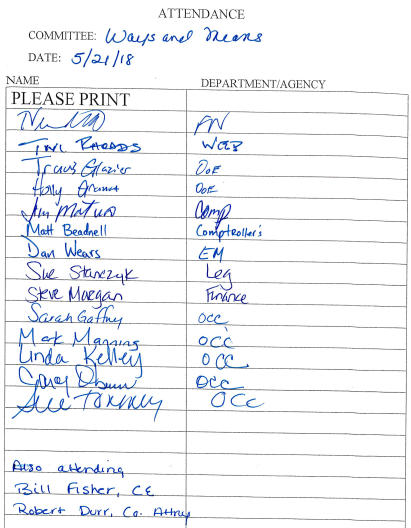 ATTENDANCE
COMMITTEE: Ways and Means
DATE: 5/21/18
NAME DEPARTMENT/AGENCY
PLEASE PRINT
FN
Travis Glazier OoE
Holly OoE
Jim Comp
Matt Beadnell Comptroller's
Dan Wears EM
Sue Stanczyk Leg
Steve Morgan Finance
Sarah Gaffney OCC
Mark Manning OCC
Linda Kelley OCC
OCC
Sue Tormey OCC
Also attending
Bill Fisher, CE
Robert Durr, Co. Attny